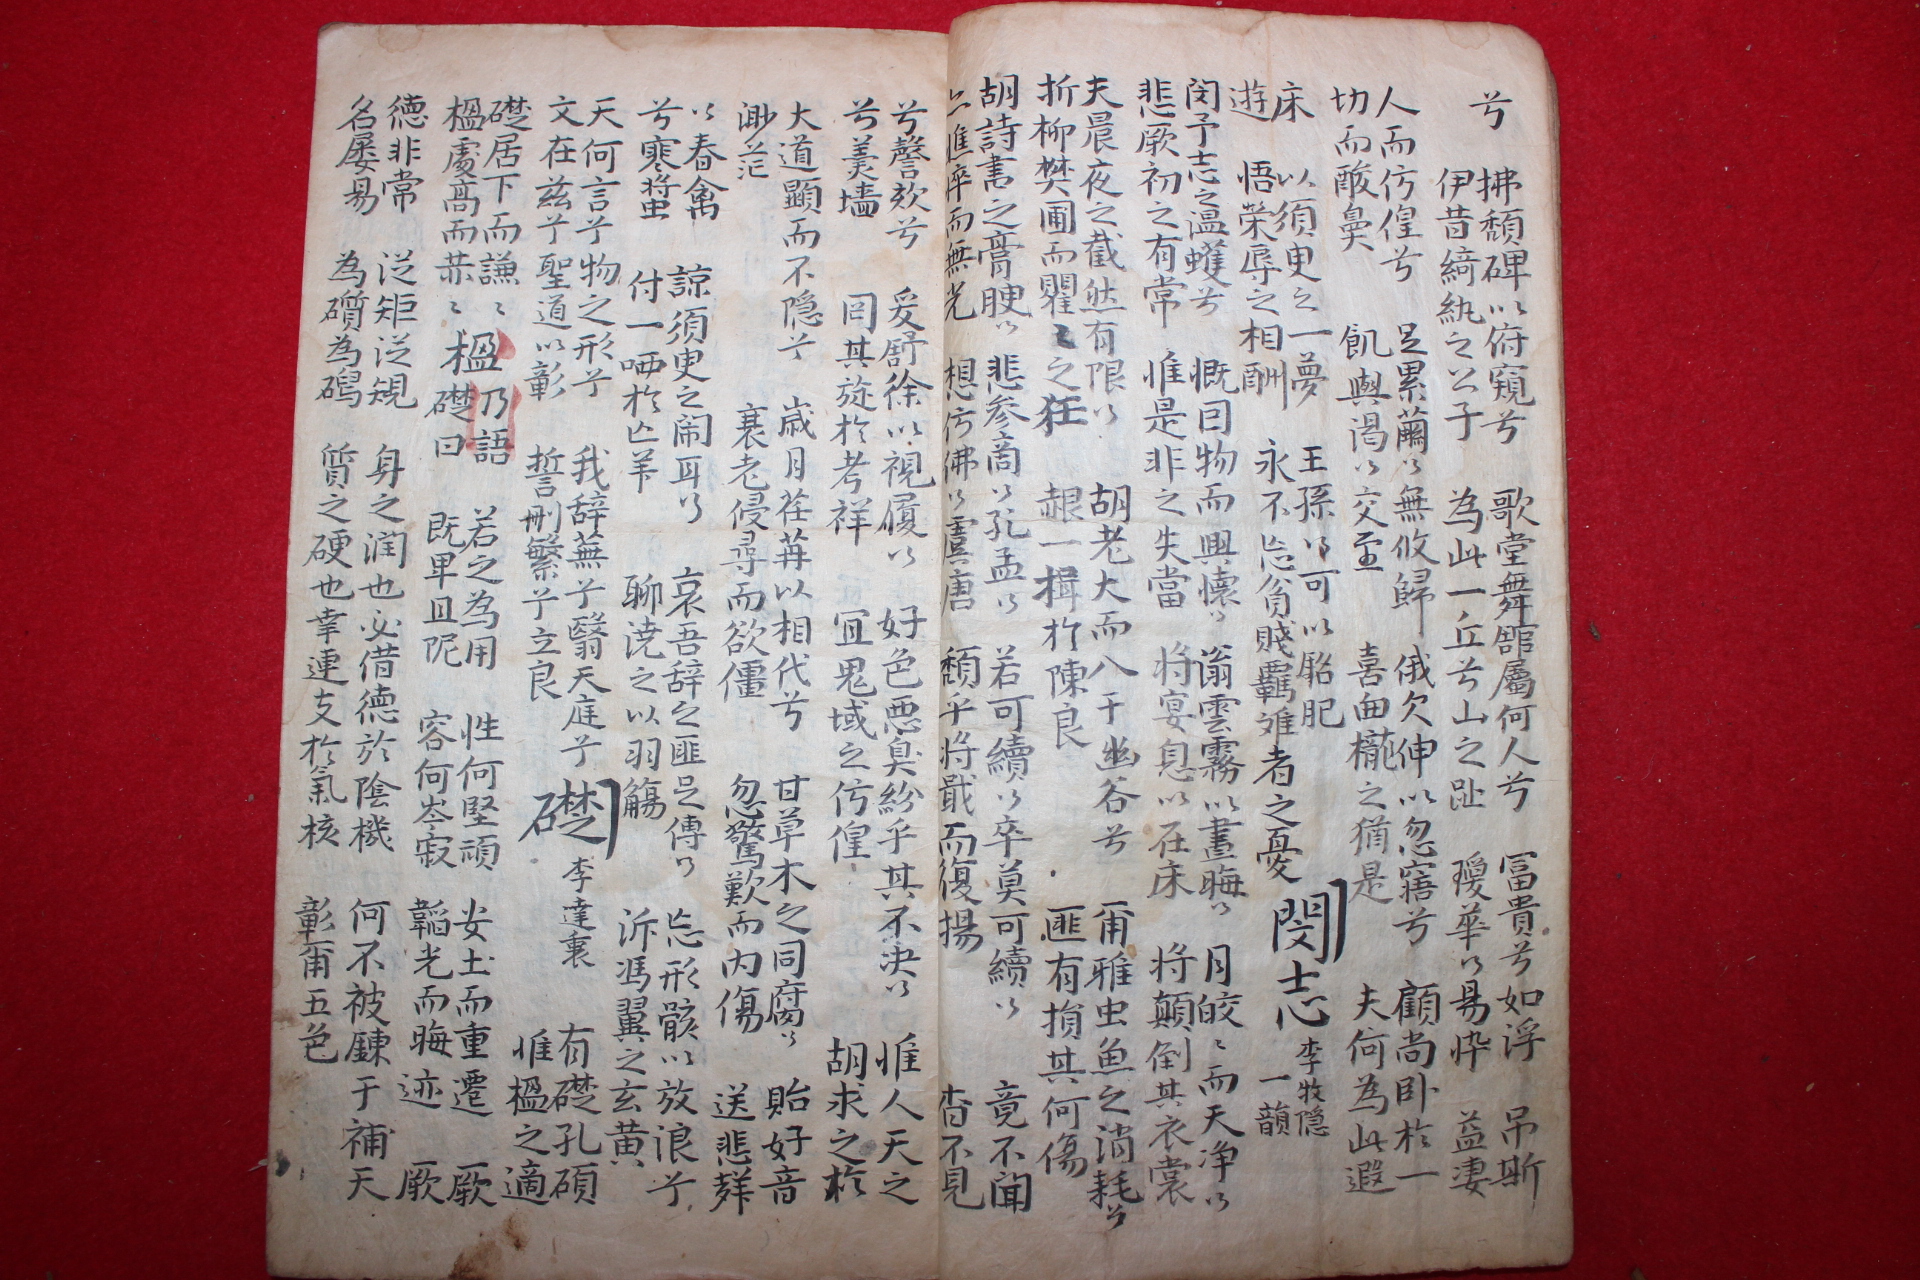 兮 拂頹碑以俯窺兮 歌堂舞舘屬何人兮 冨貴兮如浮 吊斯
伊昔綺紈之公子 為此一丘兮山之趾 瓊華以易悴 益凄
人而彷徨兮 足累繭以無攸歸 俄欠伸以忽寤兮 顧尚卧於一
切而酸鼻 飢與渴以交至 喜曲櫳之猶是 夫何為此遐
床 以須臾之一夢 王孫以可以貂肥
遊 悟榮辱之相酬 永不忘貧賤羈雖者之憂 閔志 李牧隱 一韻
閔予志之温蠖兮 慨囙物而興懷以 滃雲霧以晝晦以 月皎〻而天净以
悲厥初之有常 惟是非之失當 將宴息以在床 將顛倒其衣裳
夫晨夜之截然有限以 胡老大而入于幽谷兮 甭雅虫魚之消耗兮
折柳樊圃而瞿〻之狂 赧一揖於陳良 匪有損其何傷
胡詩書之膏腴以 悲参商以孔孟以 若可續以卒莫可續以 竟不聞
亡憔悴而無光 想彷彿以虞唐 頹乎将戢而復揚 杳不見
兮謦欬兮 爰舒徐以視履以 好色悪臭紛乎其不决以 惟人天之
兮羹墻 罔其旋於考祥 冝鬼域之彷徨 胡求之於
大道顯而不隐兮 歳月荏苒以相代兮 甘草木之同腐以 貽好音
渺茫 衰老侵尋而欲僵 忽驚歎而内傷 送悲辞
以春禽 諒須臾之閙耳以 哀吾辞之匪足傳以 忘形骸以放浪兮
兮寒螿 付一哂於亡羊 聊澆之以羽觴 泝馮翼之玄黄
天何言兮物之形兮 我辞蕪兮翳天庭兮 礎 李達衷 有礎孔碩
文在兹兮聖道以彰 誓刪繁兮立良 惟楹之適
礎居下而謙〻 楹乃語 若之為用 性何堅頑 安土而重遷 厥
楹處髙而恭〻 楹礎曰 既卑且阸 容何岑寂 韜光而晦迹 厥
德非常 泛矩泛規 身之潤也必借德於陰機 何不被鍊于補天
名屡易 為礩為磶 質之硬也幸連支於氣核 彰甭五色